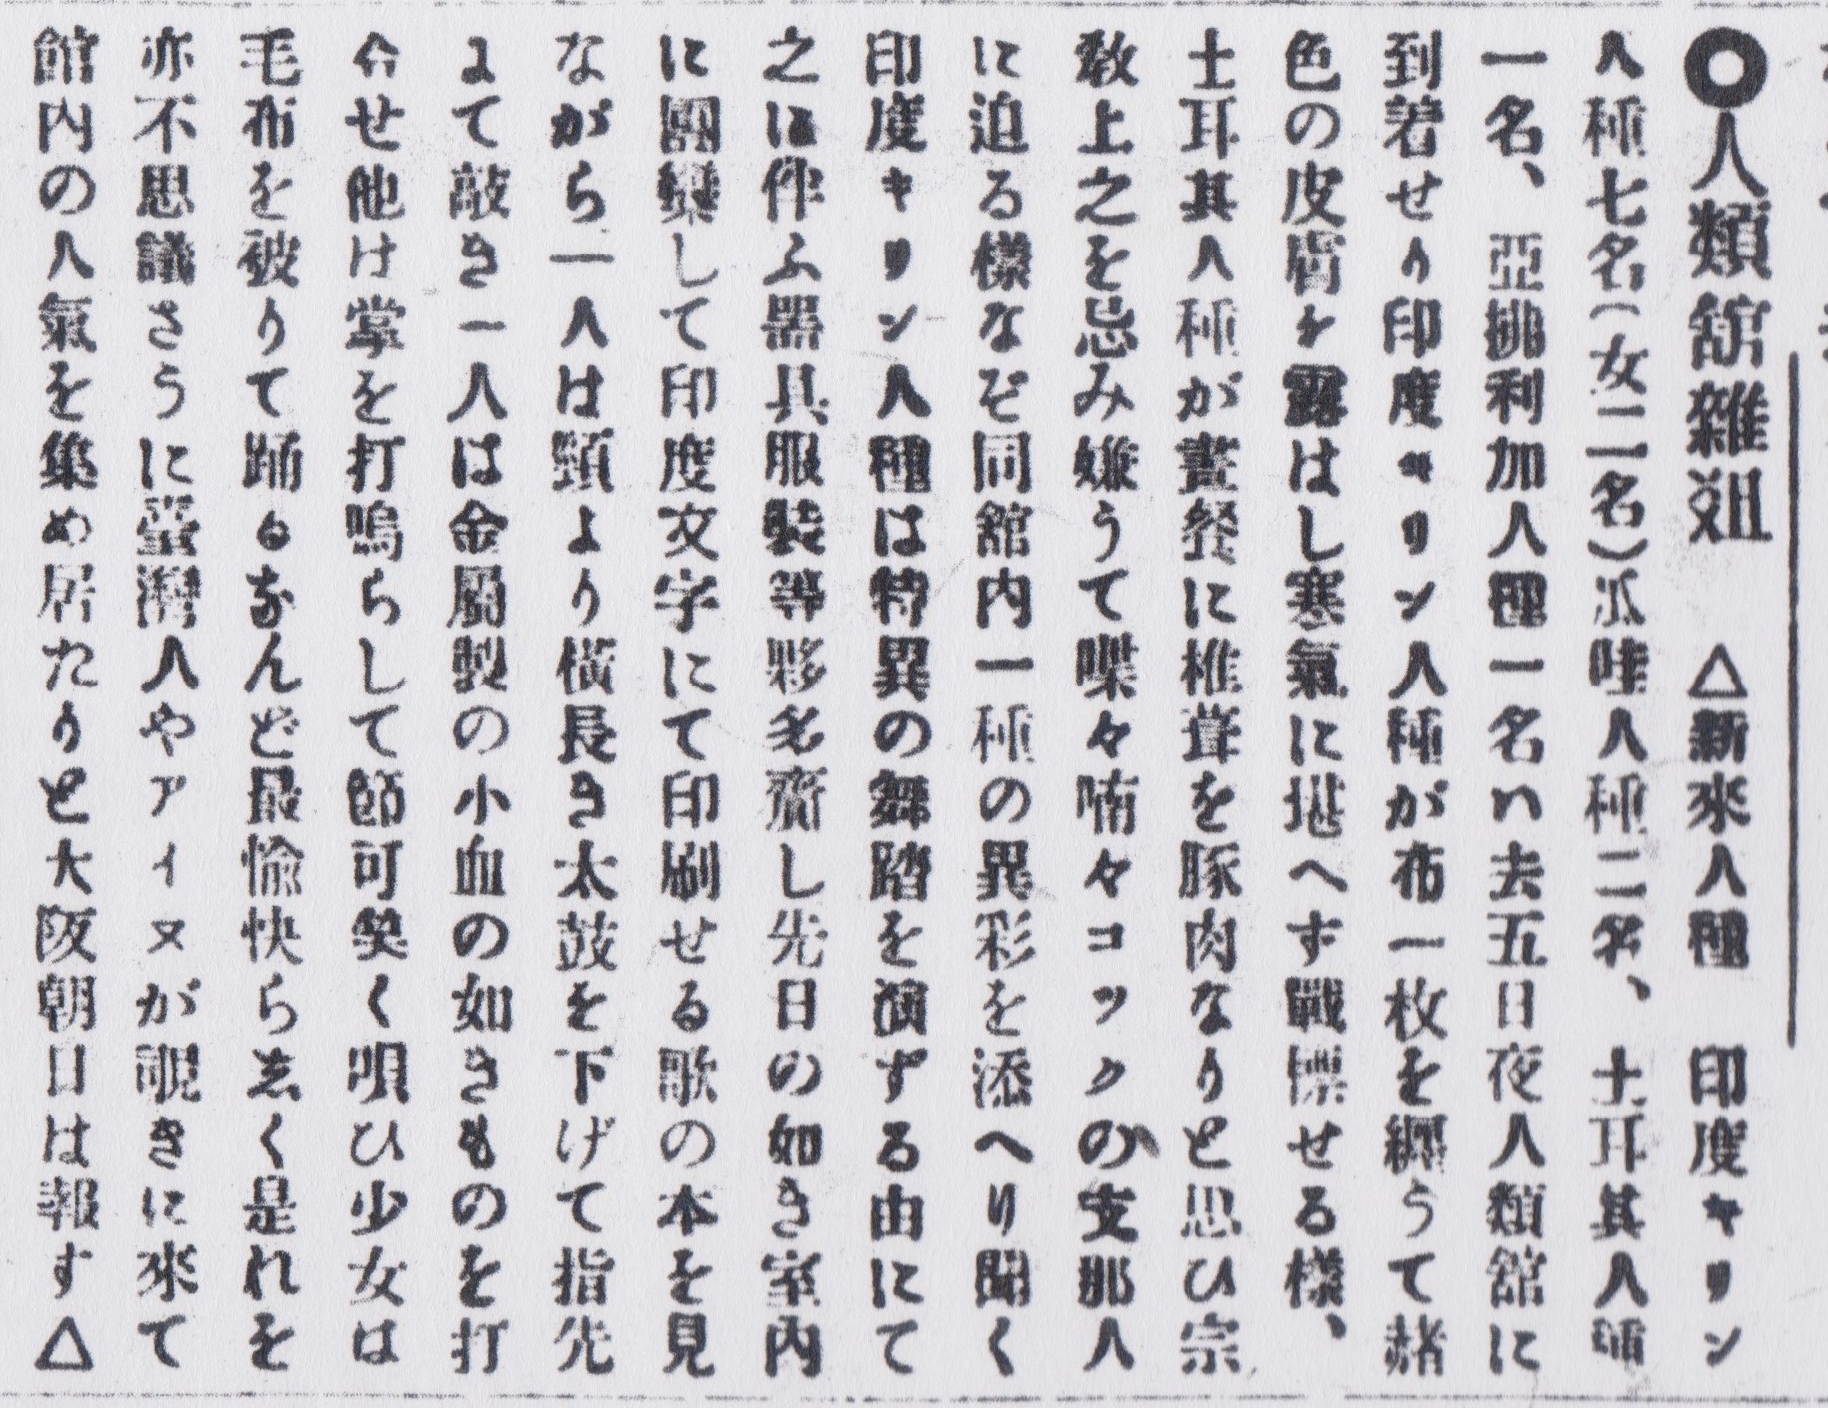 ◎人類舘雜爼　△新來人種　印度キリン
人種七名(女二名)瓜哇人種二名、土耳其人種
一名、亞排利加人種一名ハ去五日夜人類舘に
到着せり印度キリン人種が布一枚を纒うて赭
色の皮膚を露はし寒氣に堪へす戰慄せる樣、
土耳其人種が晝餐に椎茸を豚肉なりと思ひ宗
敎上之を忌み嫌うて喋々喃々コックの支那人
に迫る樣なぞ同舘内一種の異彩を添へり聞く
印度キリン人種は特異の舞踏を演ずる由にて
之に伴ふ器具服裝等夥多齎し先日の如き室内
に團欒して印度文字にて印刷せる歌の本を見
ながら一人は頸より横長き太鼓を下げて指先
よて敲き一人は金屬製の小皿の如きものを打
合せ他は掌を打鳴らして節可笑く唄ひ少女は
毛布を被りて踊るなんど最愉快らゑく是れを
亦不思議さうに臺灣人やアイヌが覗きに來て
館内の人氣を集め居たりと大阪朝日は報す△